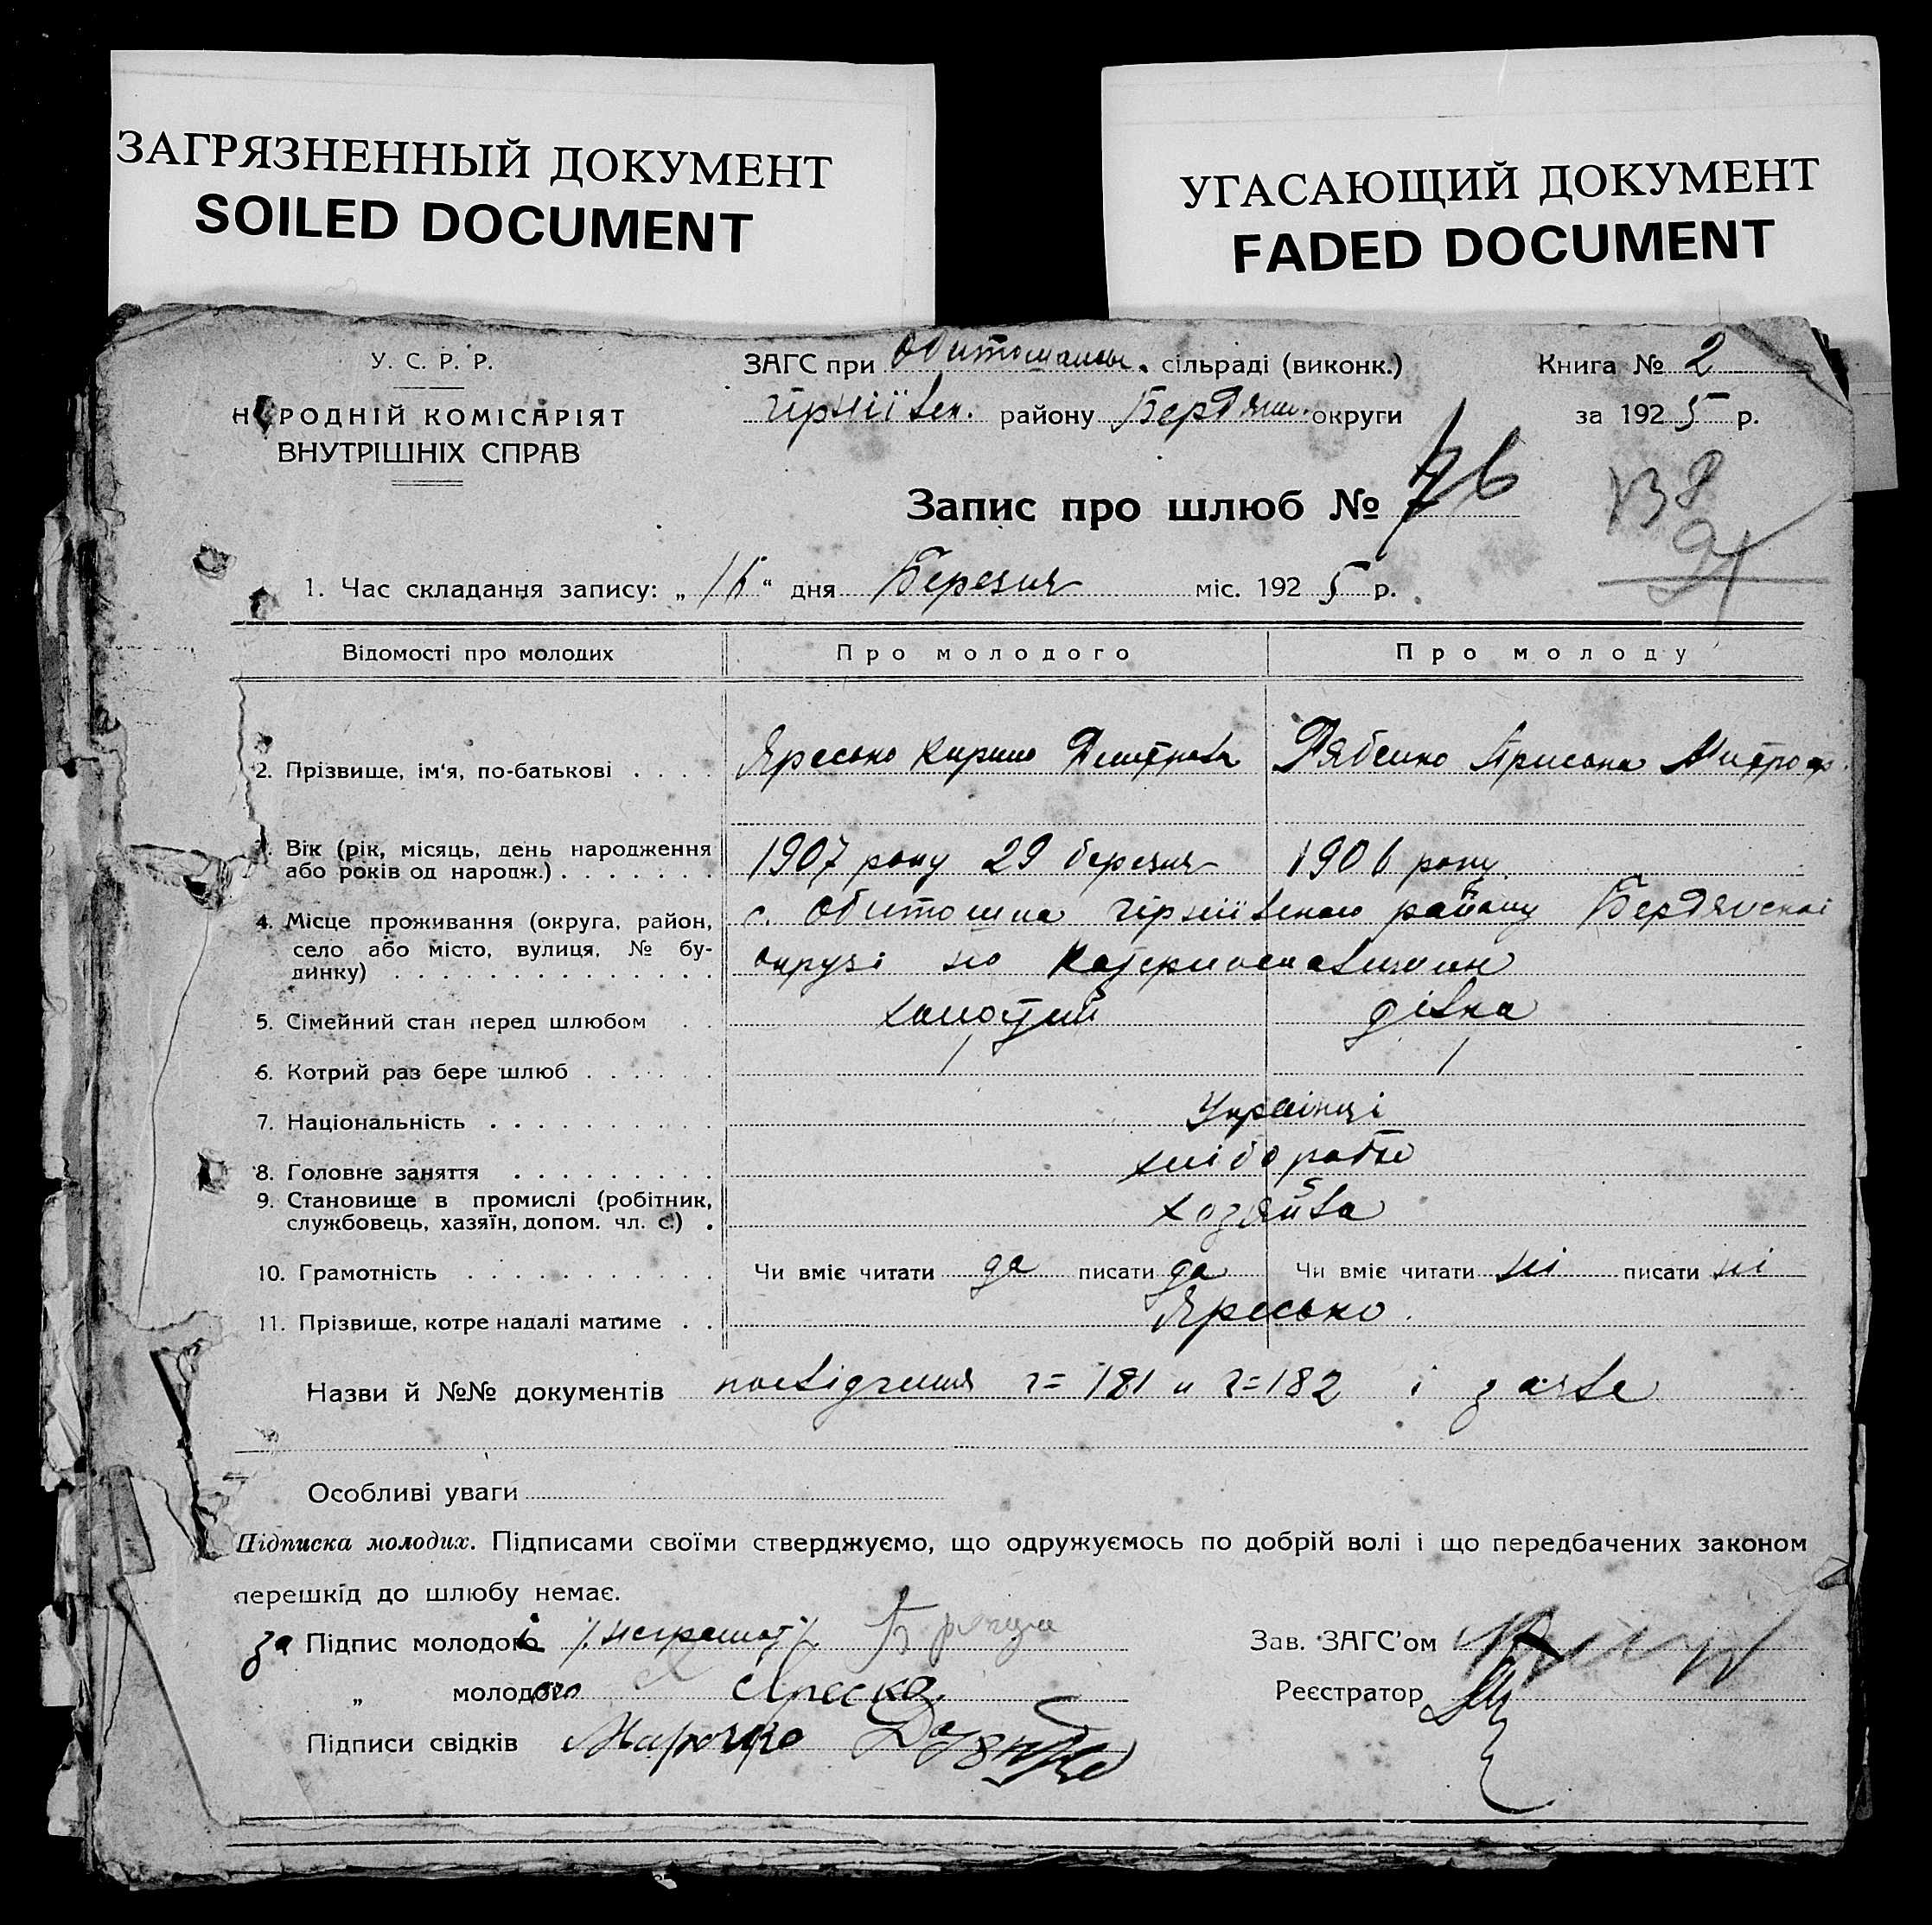 ЗАГРЯЗНЕННЫЙ ДОКУМЕНТ
SOILED DOCUMENT
УГАСАЮЩИЙ ДОКУМЕНТ
FADED DOCUMENT
У. С. Р. Р.
НАРОДНІЙ КОМІСАРІЯТ
ВНУТРІШНІХ СПРАВ
ЗАГС при сільраді (виконк.)
району Бердян. округи
Книга № 2
за 1925 р.
Запис про шлюб № 76
1. Час складання запису: „16“ дня Березня міс. 1925 р.
Відомості про молодих Про молодого Про молоду
2. Прізвище, ім'я, по-батькові . . . . Яресько Кирило Дмитров Рябенко Приська Митроф.
3. Вік (рік, місяць, день народження
або років од народж.) . . . . . . . 1907 року 29 березня 1906 року.
4. Місце проживання (округа, район, с. Обиточна району Бердянскоі
село або місто, вулиця, № бу-
динку) . . . . . . . . . . . . . округі на Катеринославщині
5. Сімейний стан перед шлюбом . . холостий дівка
6. Котрий раз бере шлюб . . . . . . 1 1
7. Національність . . . . . . . . . . Українці
8. Головне заняття . . . . . . . . . хлібороби
9. Становище в промислі (робітник,
службовець, хазяїн, допом. чл. с.) . хозяйства
10. Грамотність . . . . . . . . . . . Чи вміє читати да писати да Чи вміє читати ні писати ні
11. Прізвище, котре надалі матиме . . Яресько.
Назви й №№ документів посвідчення 181 и 182 і заява
Особливі уваги
Підписка молодих. Підписами своїми стверджуємо, що одружуємось по добрій волі і що передбачених законом
перешкід до шлюбу немає.
за Підпис молодої /неграмот/
Зав. ЗАГС'ом
„ молодого Яреско
Реєстратор
Підписи свідків